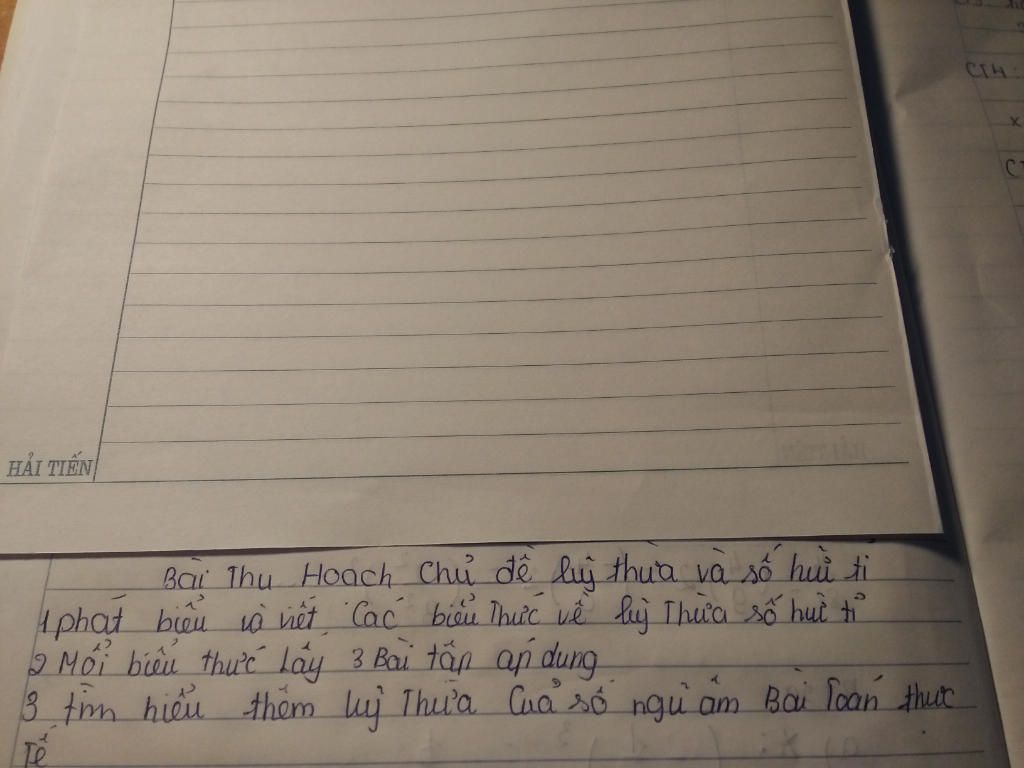 CT4 :
x
HẢI TIẾN
Bài Thu Hoạch Chủ đề luỹ thừa và số hữu tỉ
1 phát biểu và viết Các biểu Thức về luỹ Thừa số hưũ tỉ
2 Mỗi biểu thức Lấy 3 Bài tập áp dung
3 tìm hiểu thêm luỹ Thừa Của số ngũ âm Bài Toán thưc
Tế